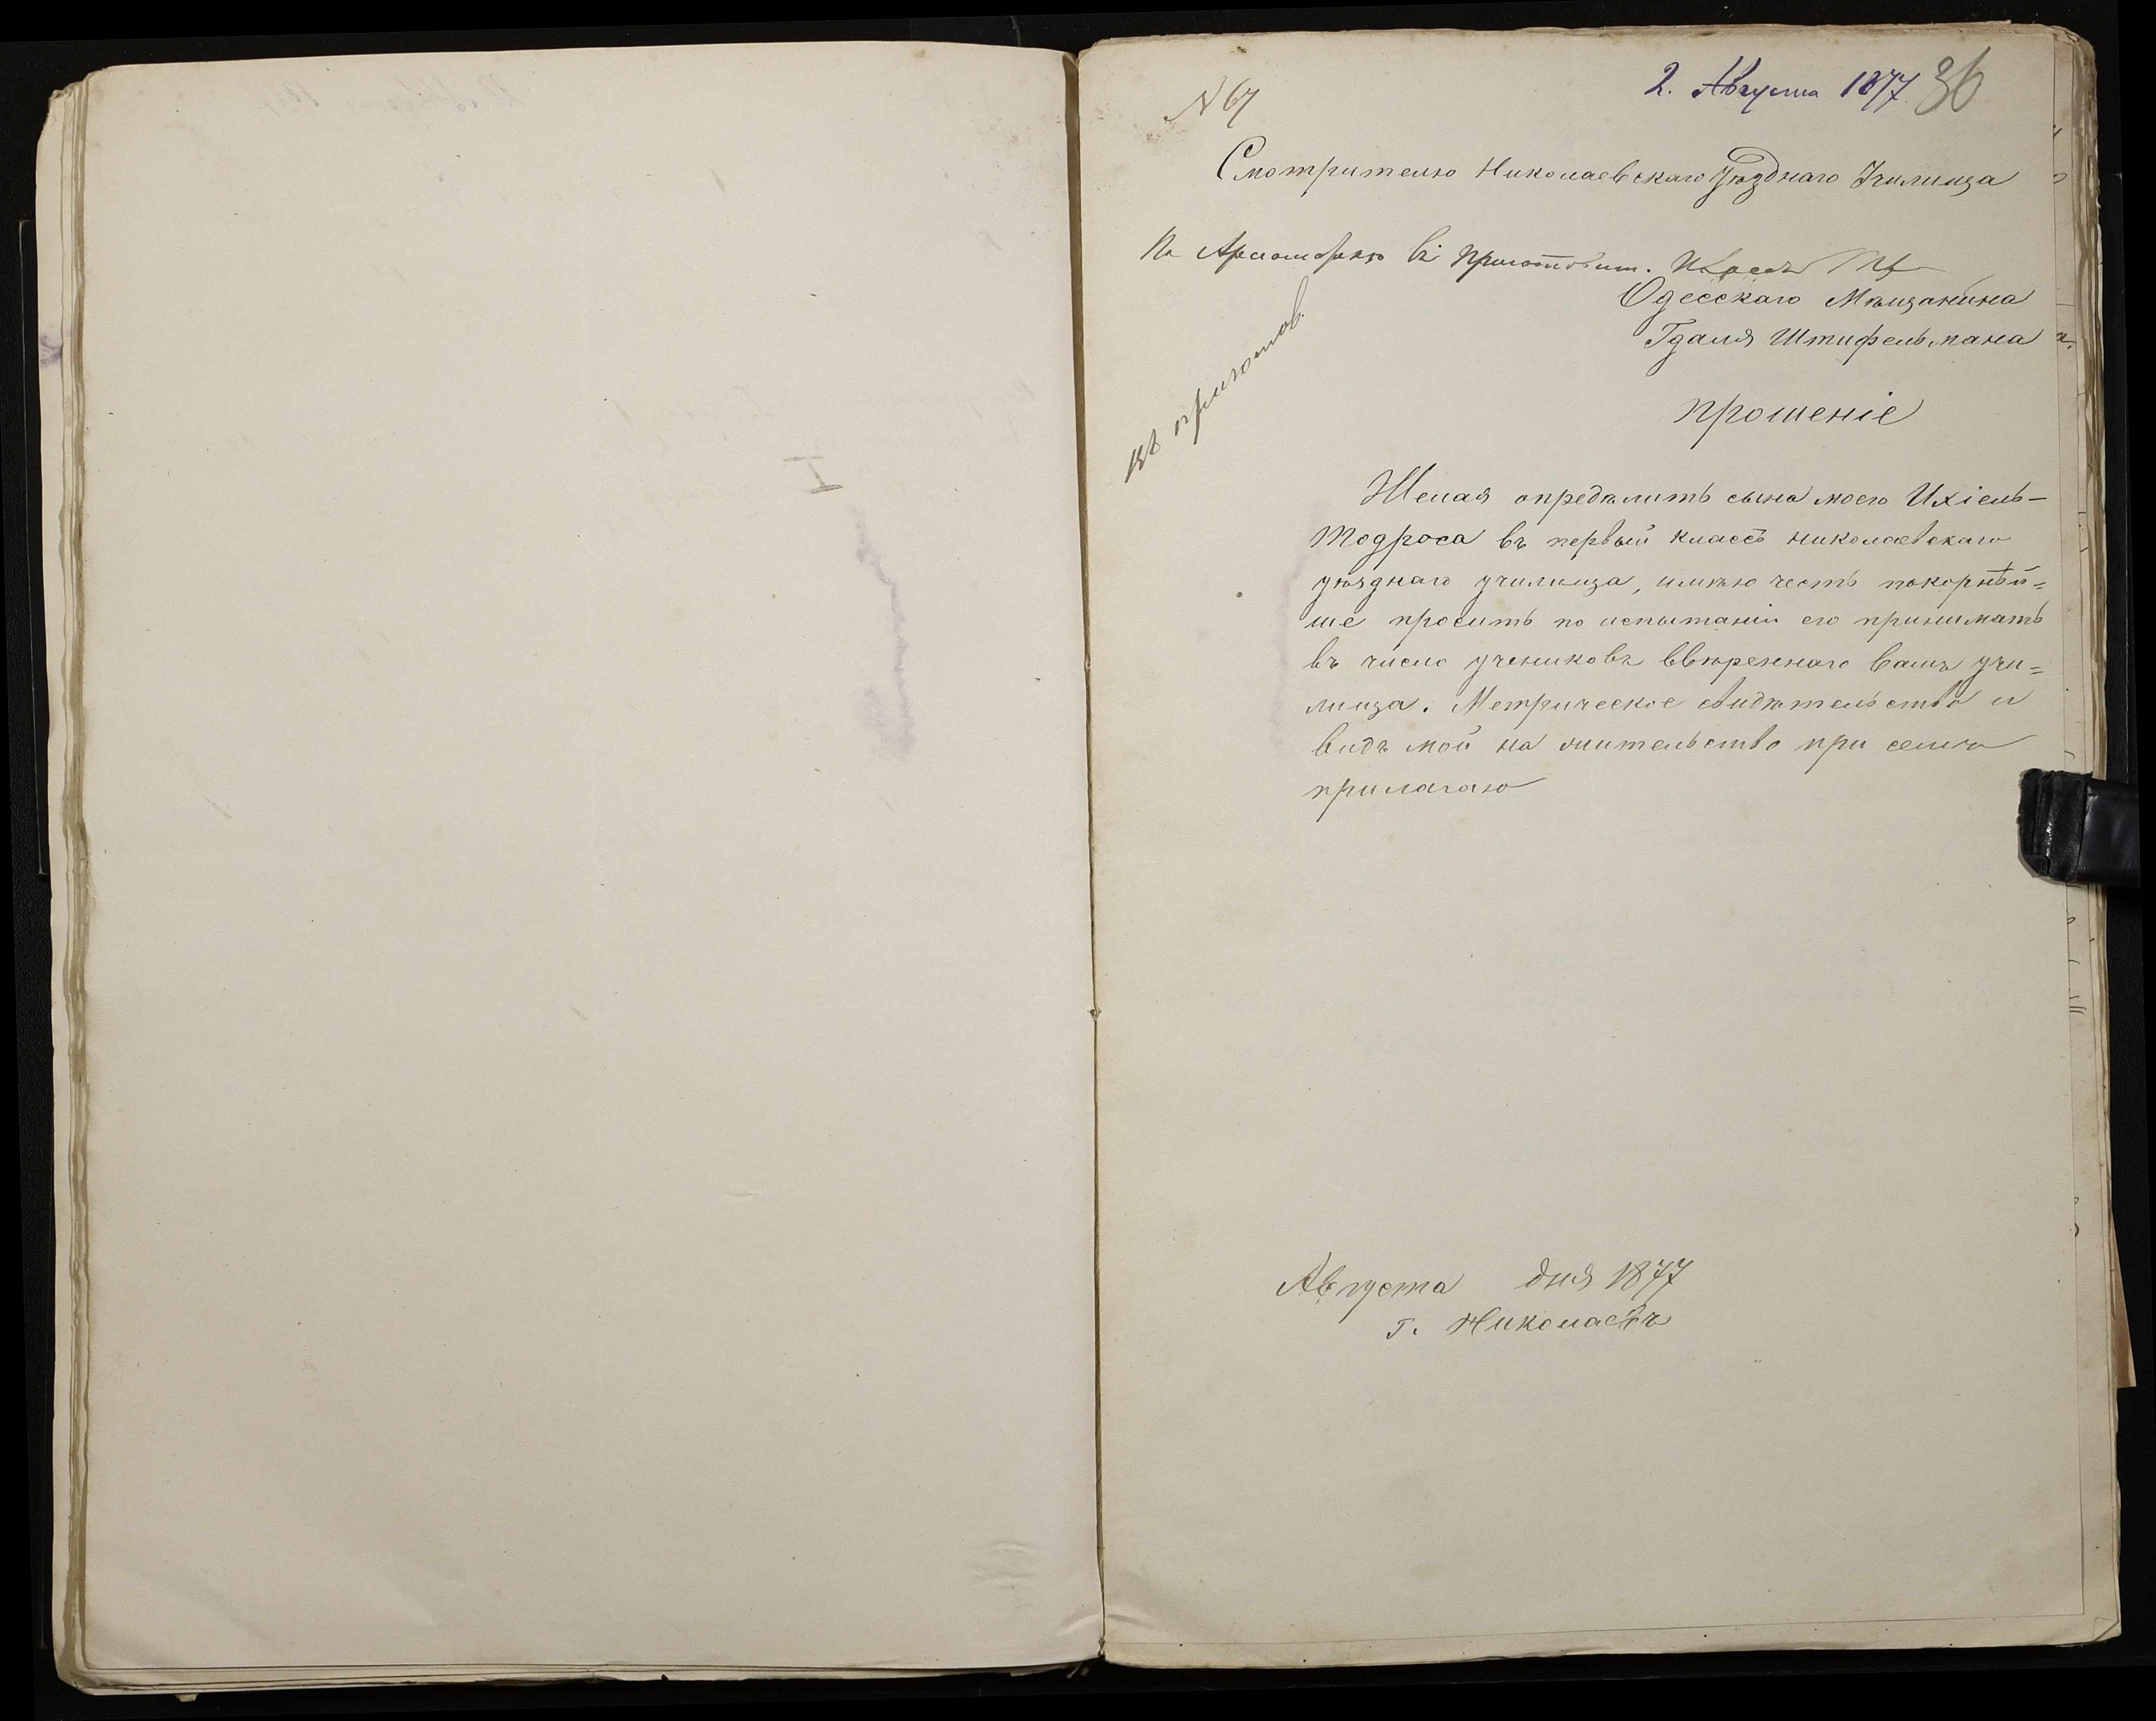 N 67
2. Августа 1877. 36
Смотрителю Николаевскаго Уѣзднаго Училища
въ приготовит. классъ
Одесскаго Мѣщанина
Гдаля Штифельмана
въ приготов.
прошеніе
Желая опредѣлить сына моего Ихіель-
Тодроса въ первый классъ николаевскаго
уѣзднаго училища, имѣю честь покорнѣй=
ше просить по испытаніи его принимать
въ число учениковъ ввѣреннаго вамъ учи=
лища. Метрическое свидѣтельство и
видъ мой на жительство при семъ
прилагаю
Августа дня 1877
г. Николаевъ